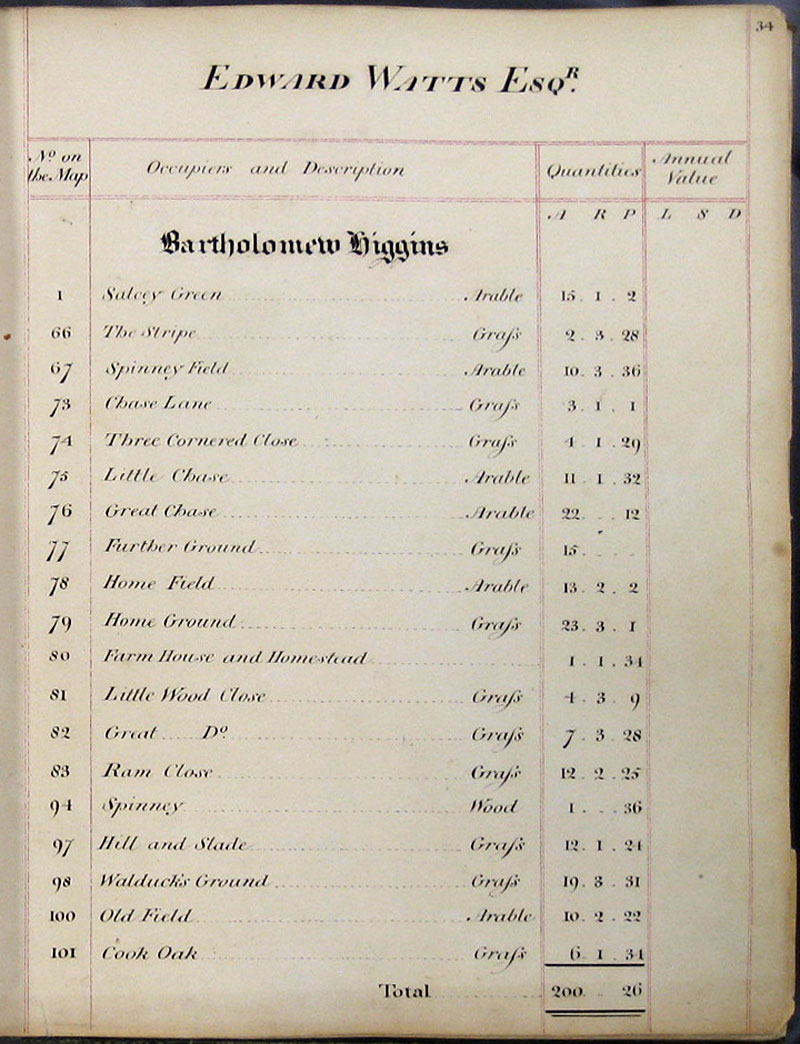 34
EDWARD WATTS ESQR.
No on the Map Occupiers and Description Quantities Annual Value
A R P L S D
Bartholomew Higgins
1 Salcey Green Arable 15 . 1 . 2
66 The Stripe Graſs 2 . 3 . 28
67 Spinney Field Arable 10 . 3 . 36
73 Chase Lane Graſs 3 . 1 . 1
74 Three Cornered Close Graſs 4 . 1 . 29
75 Little Chase Arable 11 . 1 . 32
76 Great Chase Arable 22 . . 12
77 Further Ground Graſs 15 . . .
78 Home Field Arable 13 . 2 . 2
79 Home Ground Graſs 23 . 3 . 1
80 Farm House and Homestead 1 . 1 . 34
81 Little Wood Close Graſs 4 . 3 . 9
82 Great Do Graſs 7 . 3 . 28
83 Ram Close Graſs 12 . 2 . 25
94 Spinney Wood 1 . . 36
97 Hill and Slade Graſs 12 . 1 . 24
98 Walducks Ground Graſs 19 . 3 . 31
100 Old Field Arable 10 . 2 . 22
101 Cook Oak Graſs 6 . 1 . 34
Total 200 . . 26